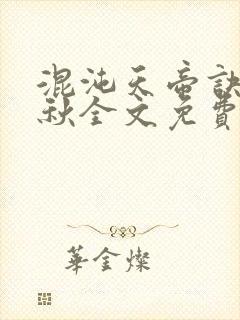 混沌天帝訣
秋全文免費
華金燦